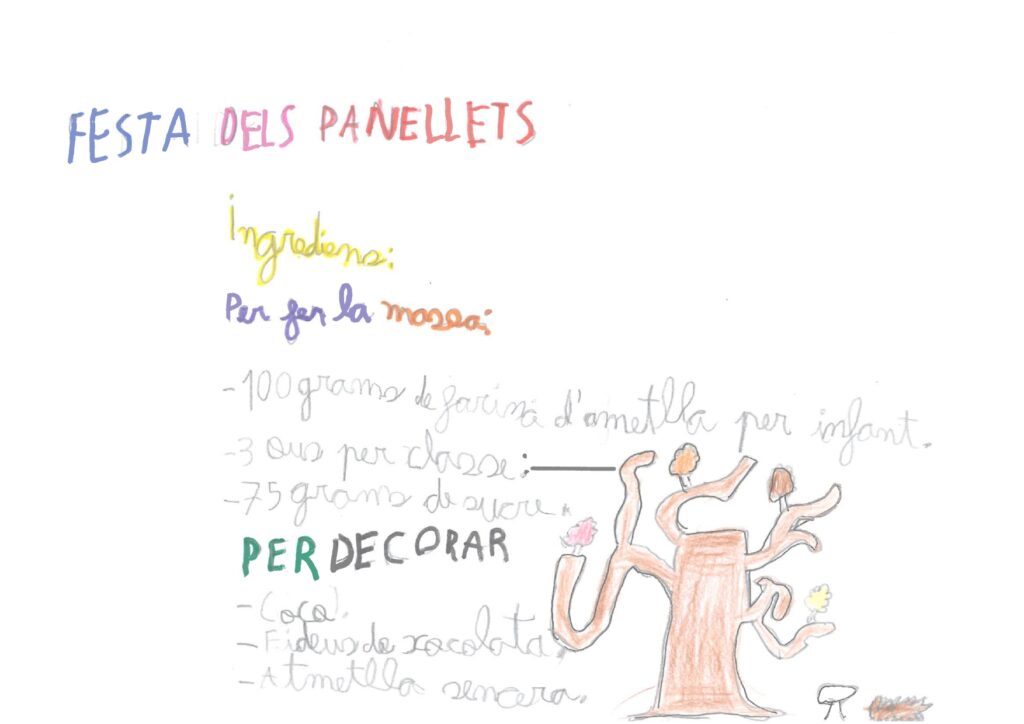 FESTA DELS PANELLETS
Ingrediens:
Per fer la massa:
-100 grams de farina d'ametlla per infant.
-3 ous per classe:
-75 grams de sucre.
PER DECORAR
-Coco.
-Fideus de xocolata,
-Atmetlla sencera.